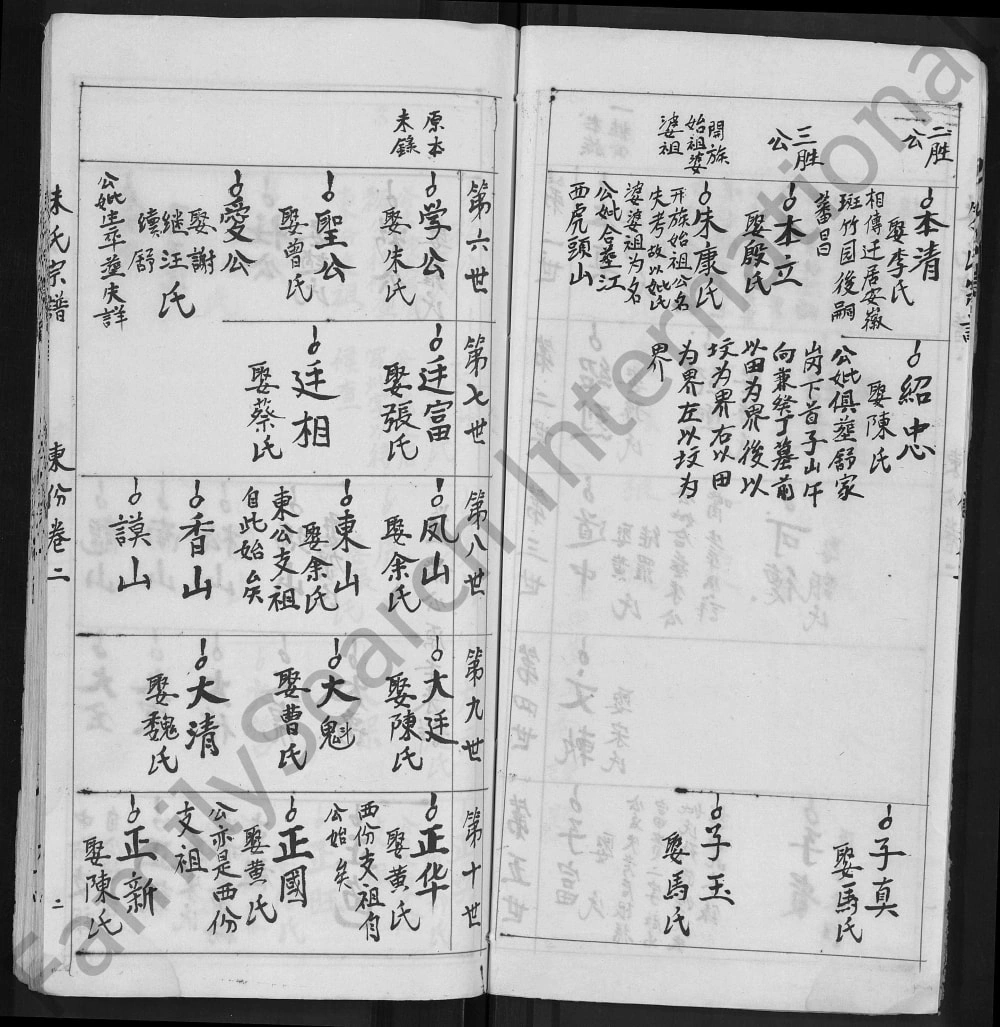 二胜
公
本清
娶李氏
相傳迁居安徽
斑竹园後嗣
蕃昌
三胜
公
本立
娶殷氏
開族
始祖婆
婆祖
朱康氏
开族始祖公名
失考故以妣氏
婆婆祖为名
公妣合塟江
西虎頭山
紹忠
娶陳氏
公妣俱塟舒家
岗下首子山午
向兼癸丁墓前
以田为界後以
坟为界右以田
为界左以坟为
界
子真
娶馬氏
子玉
娶馬氏
原本
未錄
第六世
学公
娶朱氏
聖公
娶曾氏
愛公
娶謝
继汪氏
續舒
公妣生卒塟失詳
第七世
廷富
娶張氏
廷相
娶蔡氏
第八世
凤山
娶余氏
東山
娶余氏
東公支祖
自此始矣
香山
謨山
第九世
大廷
娶陳氏
大魁
娶曹氏
大清
娶魏氏
第十世
正华
娶黄氏
西份支祖自
公始矣
正國
娶黄氏
公亦是西份
支祖
正新
娶陳氏
朱氏宗譜
東份卷二
二
FamilySearch International